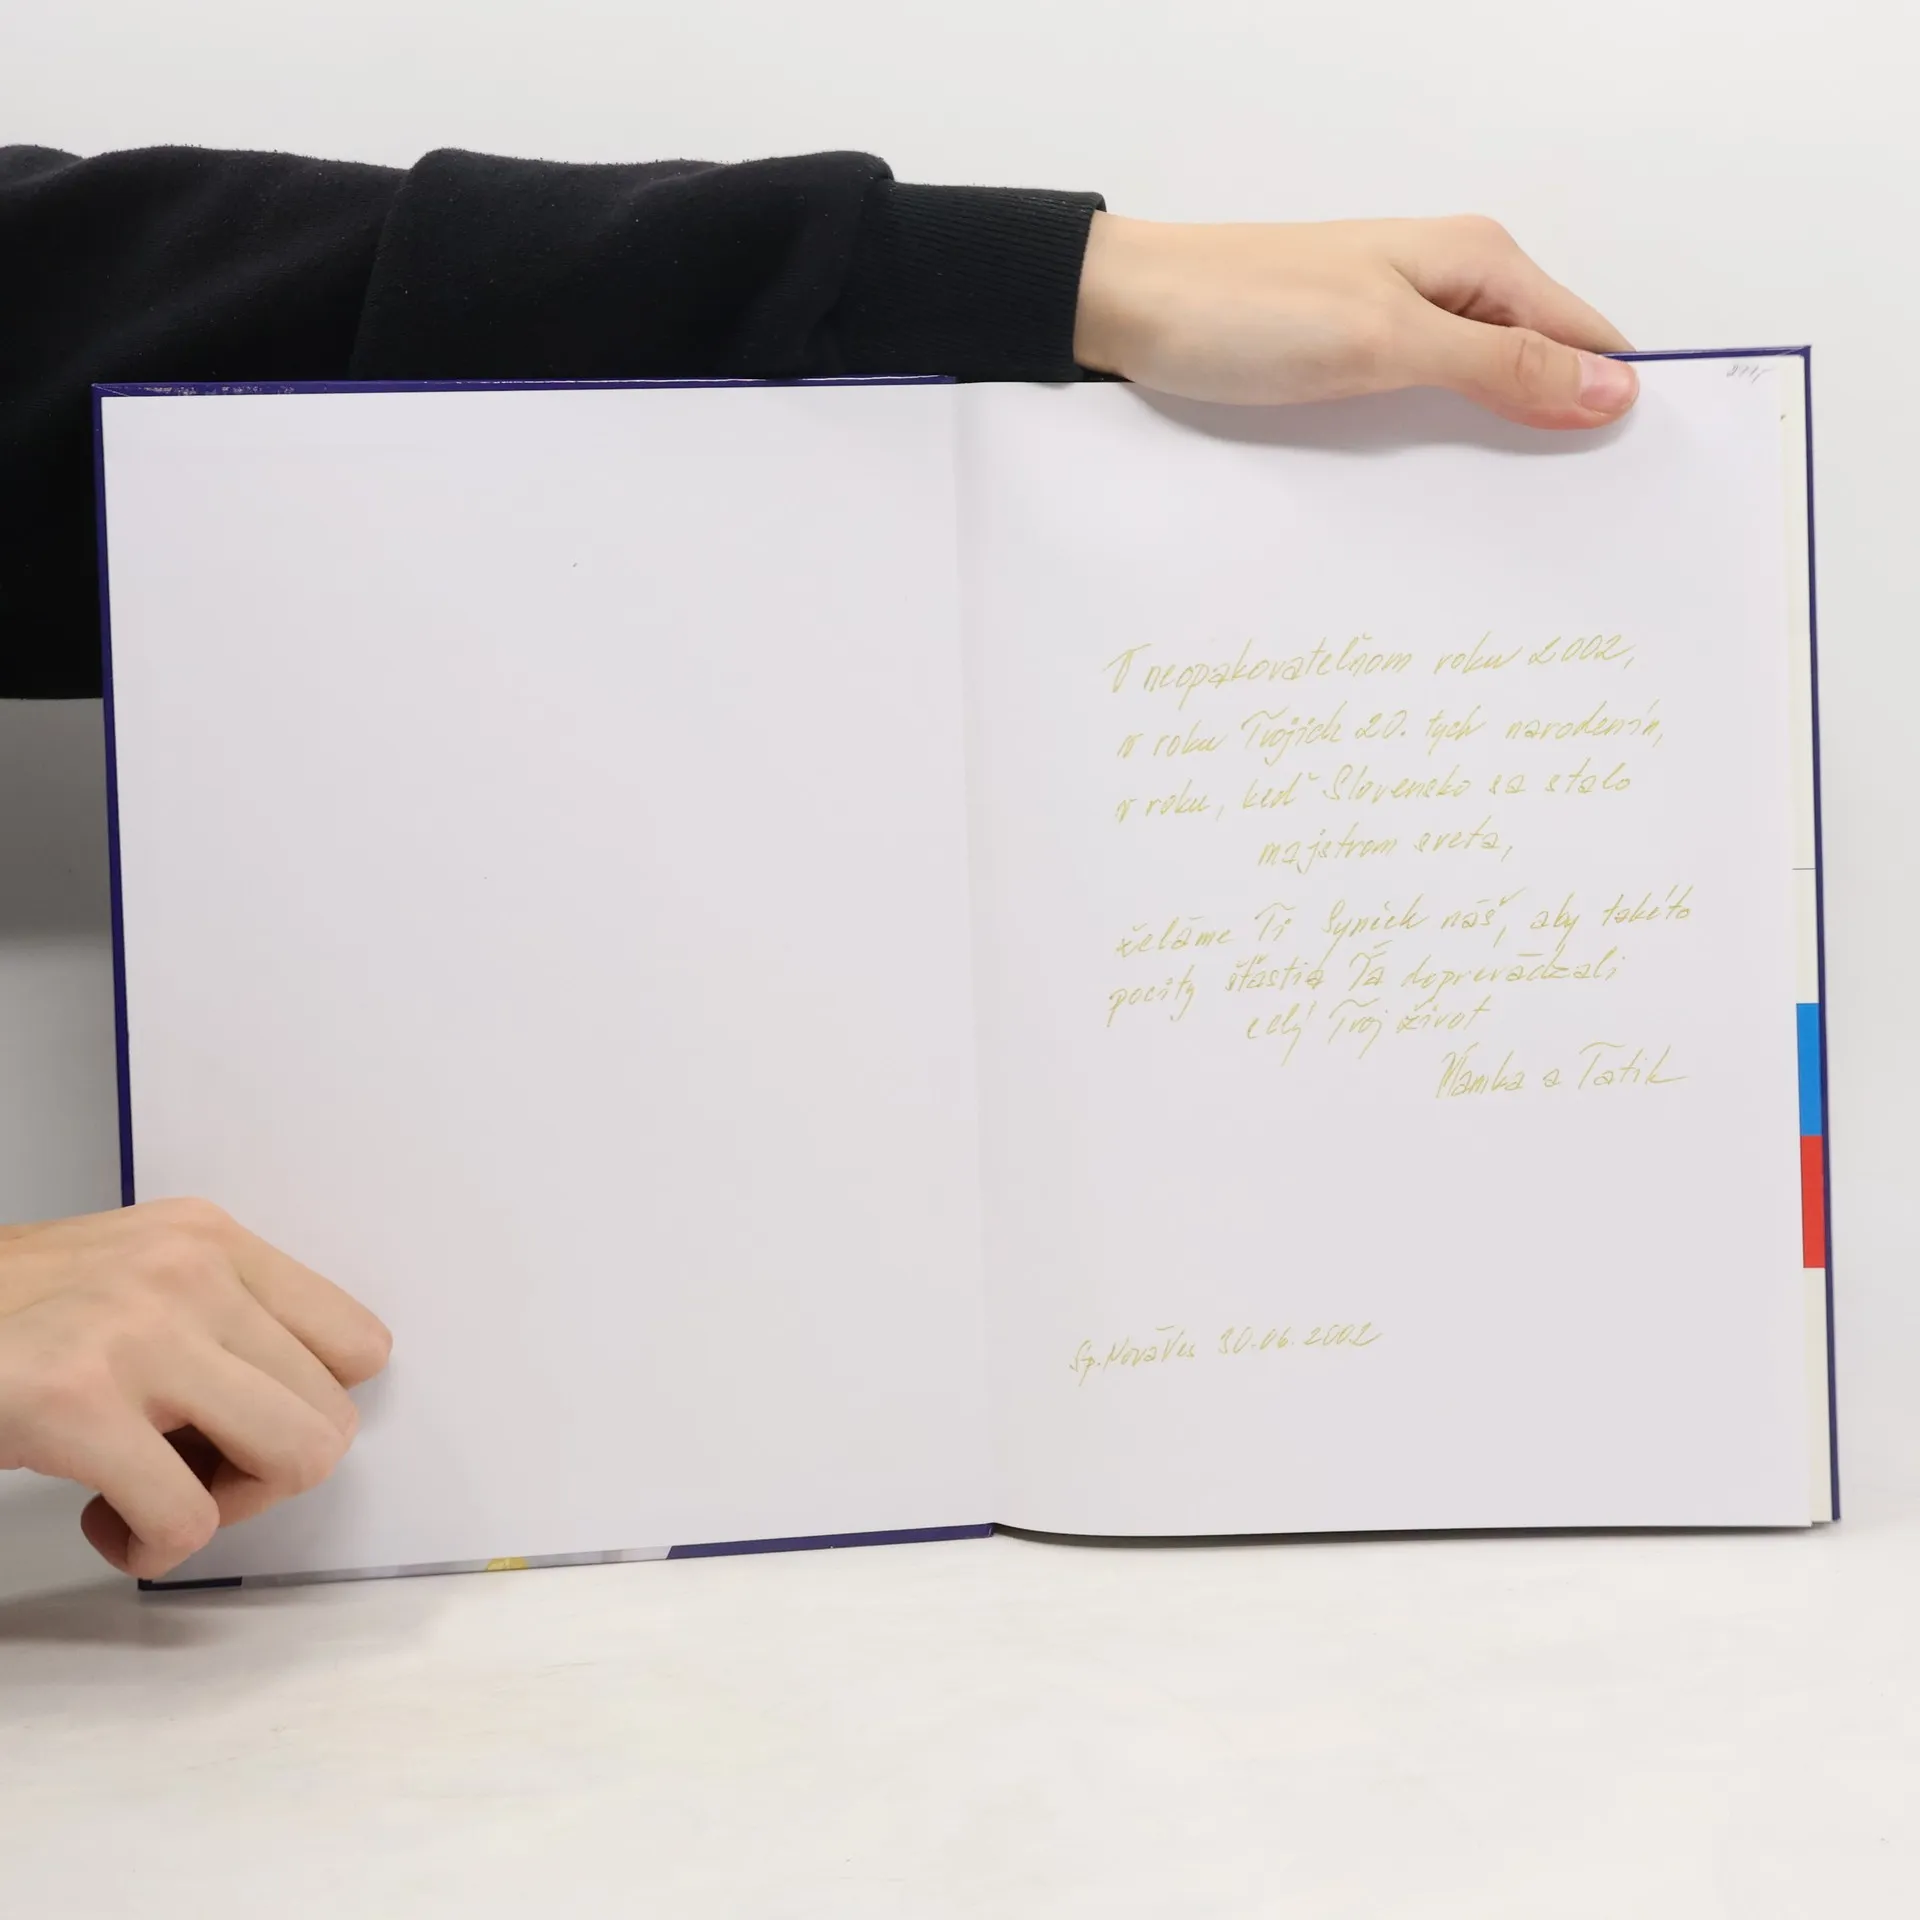 V neopakovateľnom roku 2002,
v roku Tvojich 20. tych narodenín,
v roku, keď Slovensko sa stalo
majstrom sveta,
želáme Ti Synček náš, aby takéto
pocity šťastia Ťa doprevádzali
celý Tvoj život
Mamka a Tatik
Sp. Nová Ves 30.06.2002